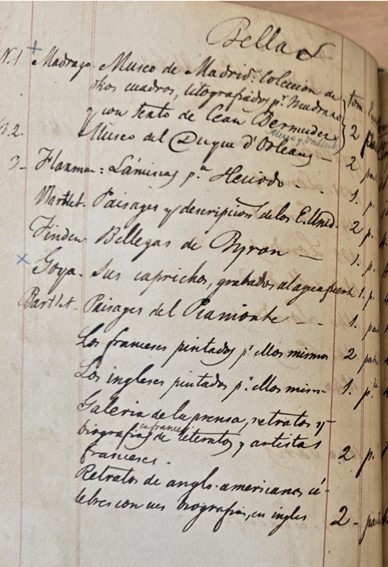 Bellas
N. 1. + Madrazo. Museo de Madrid. Coleccion de tom
chos cuadros, litografiados pr. Madrazo
y con texto de Cean Bermudez 2
N. 2. Museo del Duque d'Orleans 2 pa
3 - Flaxman = Láminas pa. Hesiodo - - 1. p
Bartlet. Paisages y descripcion de los E. Unid. 2 p.
Finden. Bellezas de Byron - 1. p
x Goya. Sus caprichos, grabados al agua fuerte 1. p.
Bartlet - Paisages del Piamonte - - 1. p
Los franceses pintados pr. ellos mismos 2 pa
Los ingleses pintados pr. ellos mism 1. p.
Galeria de la prensa, retratos y
biografias de literatos y artistas
en frances
franceses. 2 p.
Retratos de anglo-americanos cé-
lebres con sus biografias, en ingles 2 - pa